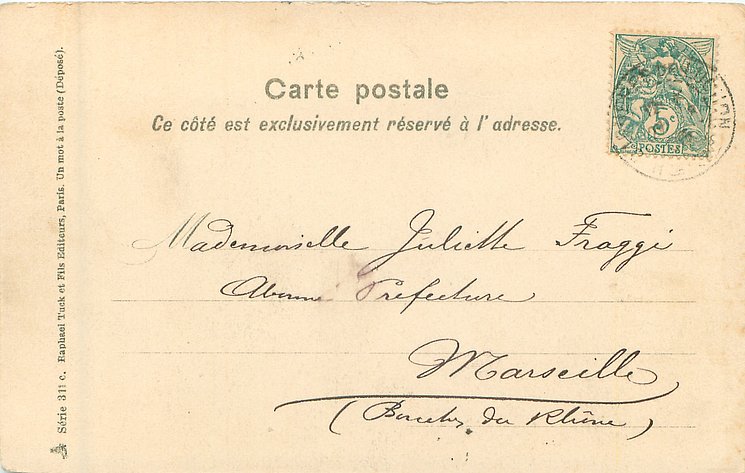 Carte postale
Ce côté est exclusivement réservé à l'adresse.
5c
POSTES
Mademoiselle Juliette Fraggi
Abonné Préfecture
Marseille
(Bouches du Rhône)
Raphael Tuck et Fils Editeurs, Paris. Un mot à la poste (Déposé).